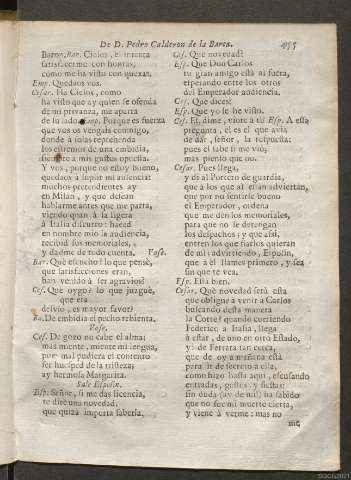 De D. Pedro Calderon de la Barca. 455
Baron. Bar. Cielos, el intenta
satisfacerme con honras,
como me ha visto con quexas.
Emp. Quedaos vos.
Cesar. Ha Cielos, como
ha visto que ay quien se ofenda
de mi privança, me aparta
de su lado. Emp. Porque es fuerza
que vos os vengais conmigo,
donde à solas reprehenda
los estremos de una embidia,
siempre à mis gustos opuesta.
Y vos, porque no estoy bueno,
quedaos à suplir mi ausencia:
muchos pretendientes ay
en Milàn, y que desean
hablarme antes que me parta,
viendo quan à la ligera
à Italia discurro: haced
en nombre mio la audiencia,
recibid sus memoriales,
y dadme de todo cuenta. Vase.
Bar. Què escucho? lo que pensè,
que satisfacciones eran,
han venido à ser agravios?
Ces. Què oygo? lo que juzguè,
que era
desvio, es mayor favor?
Ba. De embidia el pecho rebienta.
Vase.
Ces. De gozo no cabe el alma:
mas miente, miente mi lengua,
que mal pudiera el contento
ser huesped de la tristeza:
ay hermosa Margarita.
Sale Espolin.
Esp. Señor, si me das licencia,
te dirè una novedad,
que quizà importa saberla.
Ces. Què novedad?
Esp. Que Don Carlos
tu gran amigo està ài fuera,
esperando entre los otros
del Emperador audiencia.
Ces. Què dices?
Esp. Que yo le he visto.
Ces. El, dime, viote à ti? Esp. A essa
pregunta, èl es el que avia
de dàr, señor, la respuesta:
pues èl sabe si me viò;
mas pienso que no.
Cesar. Pues llega,
y dì al Portero de guardia,
que à los que ai estàn adviertan,
que por no sentirse bueno
el Emperador, ordena
que me den los memoriales,
para que no se detengan
los despachos; y que assi,
entren los que fiarlos quieran
de mi; advirtiendo, Espolin,
que à èl llames primero, y sea
sin que te vea.
Esp. Està bien.
Cesar. Què novedad serà esta
que obligue à venir à Carlos
buscando desta manera
la Corte? quando corriendo
Federico à Italia, llega
à estàr, de uno en otro Estado,
yà de Ferrara tan cerca,
que de oy à mañana està
para ir de secreto à ella,
como hizo hasta aqui, escusando
entradas, gastos, y fiestas:
sin duda (ay de mi!) ha sabido
que no fue mi muerte cierta,
y viene à verme: mas no